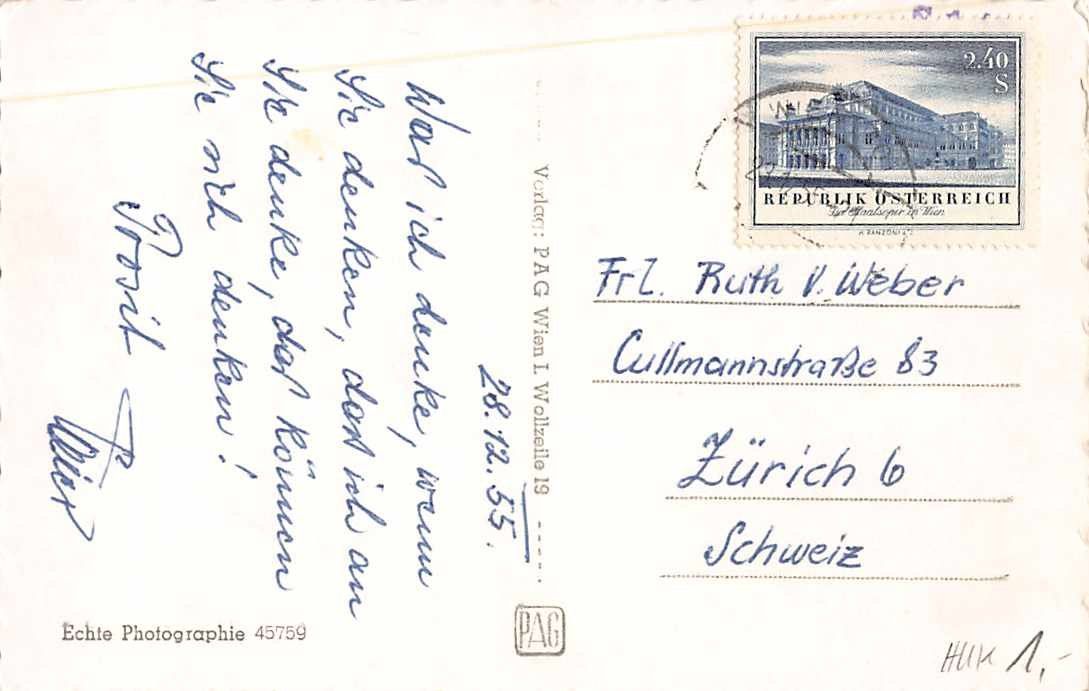 2.40
S
REPUBLIK ÖSTERREICH
Die Staatsoper in Wien
28.12.55.
Was ich denke, wenn
Sie denken, das ich an
Sie denke, das können
Sie nich denken!
Prosit
Verlag: PAG Wien I. Wollzeile 19
Frl. Ruth V. Weber
Cullmannstraße 83
Zürich 6
Schweiz
Echte Photographie 45759
PAG
1,-